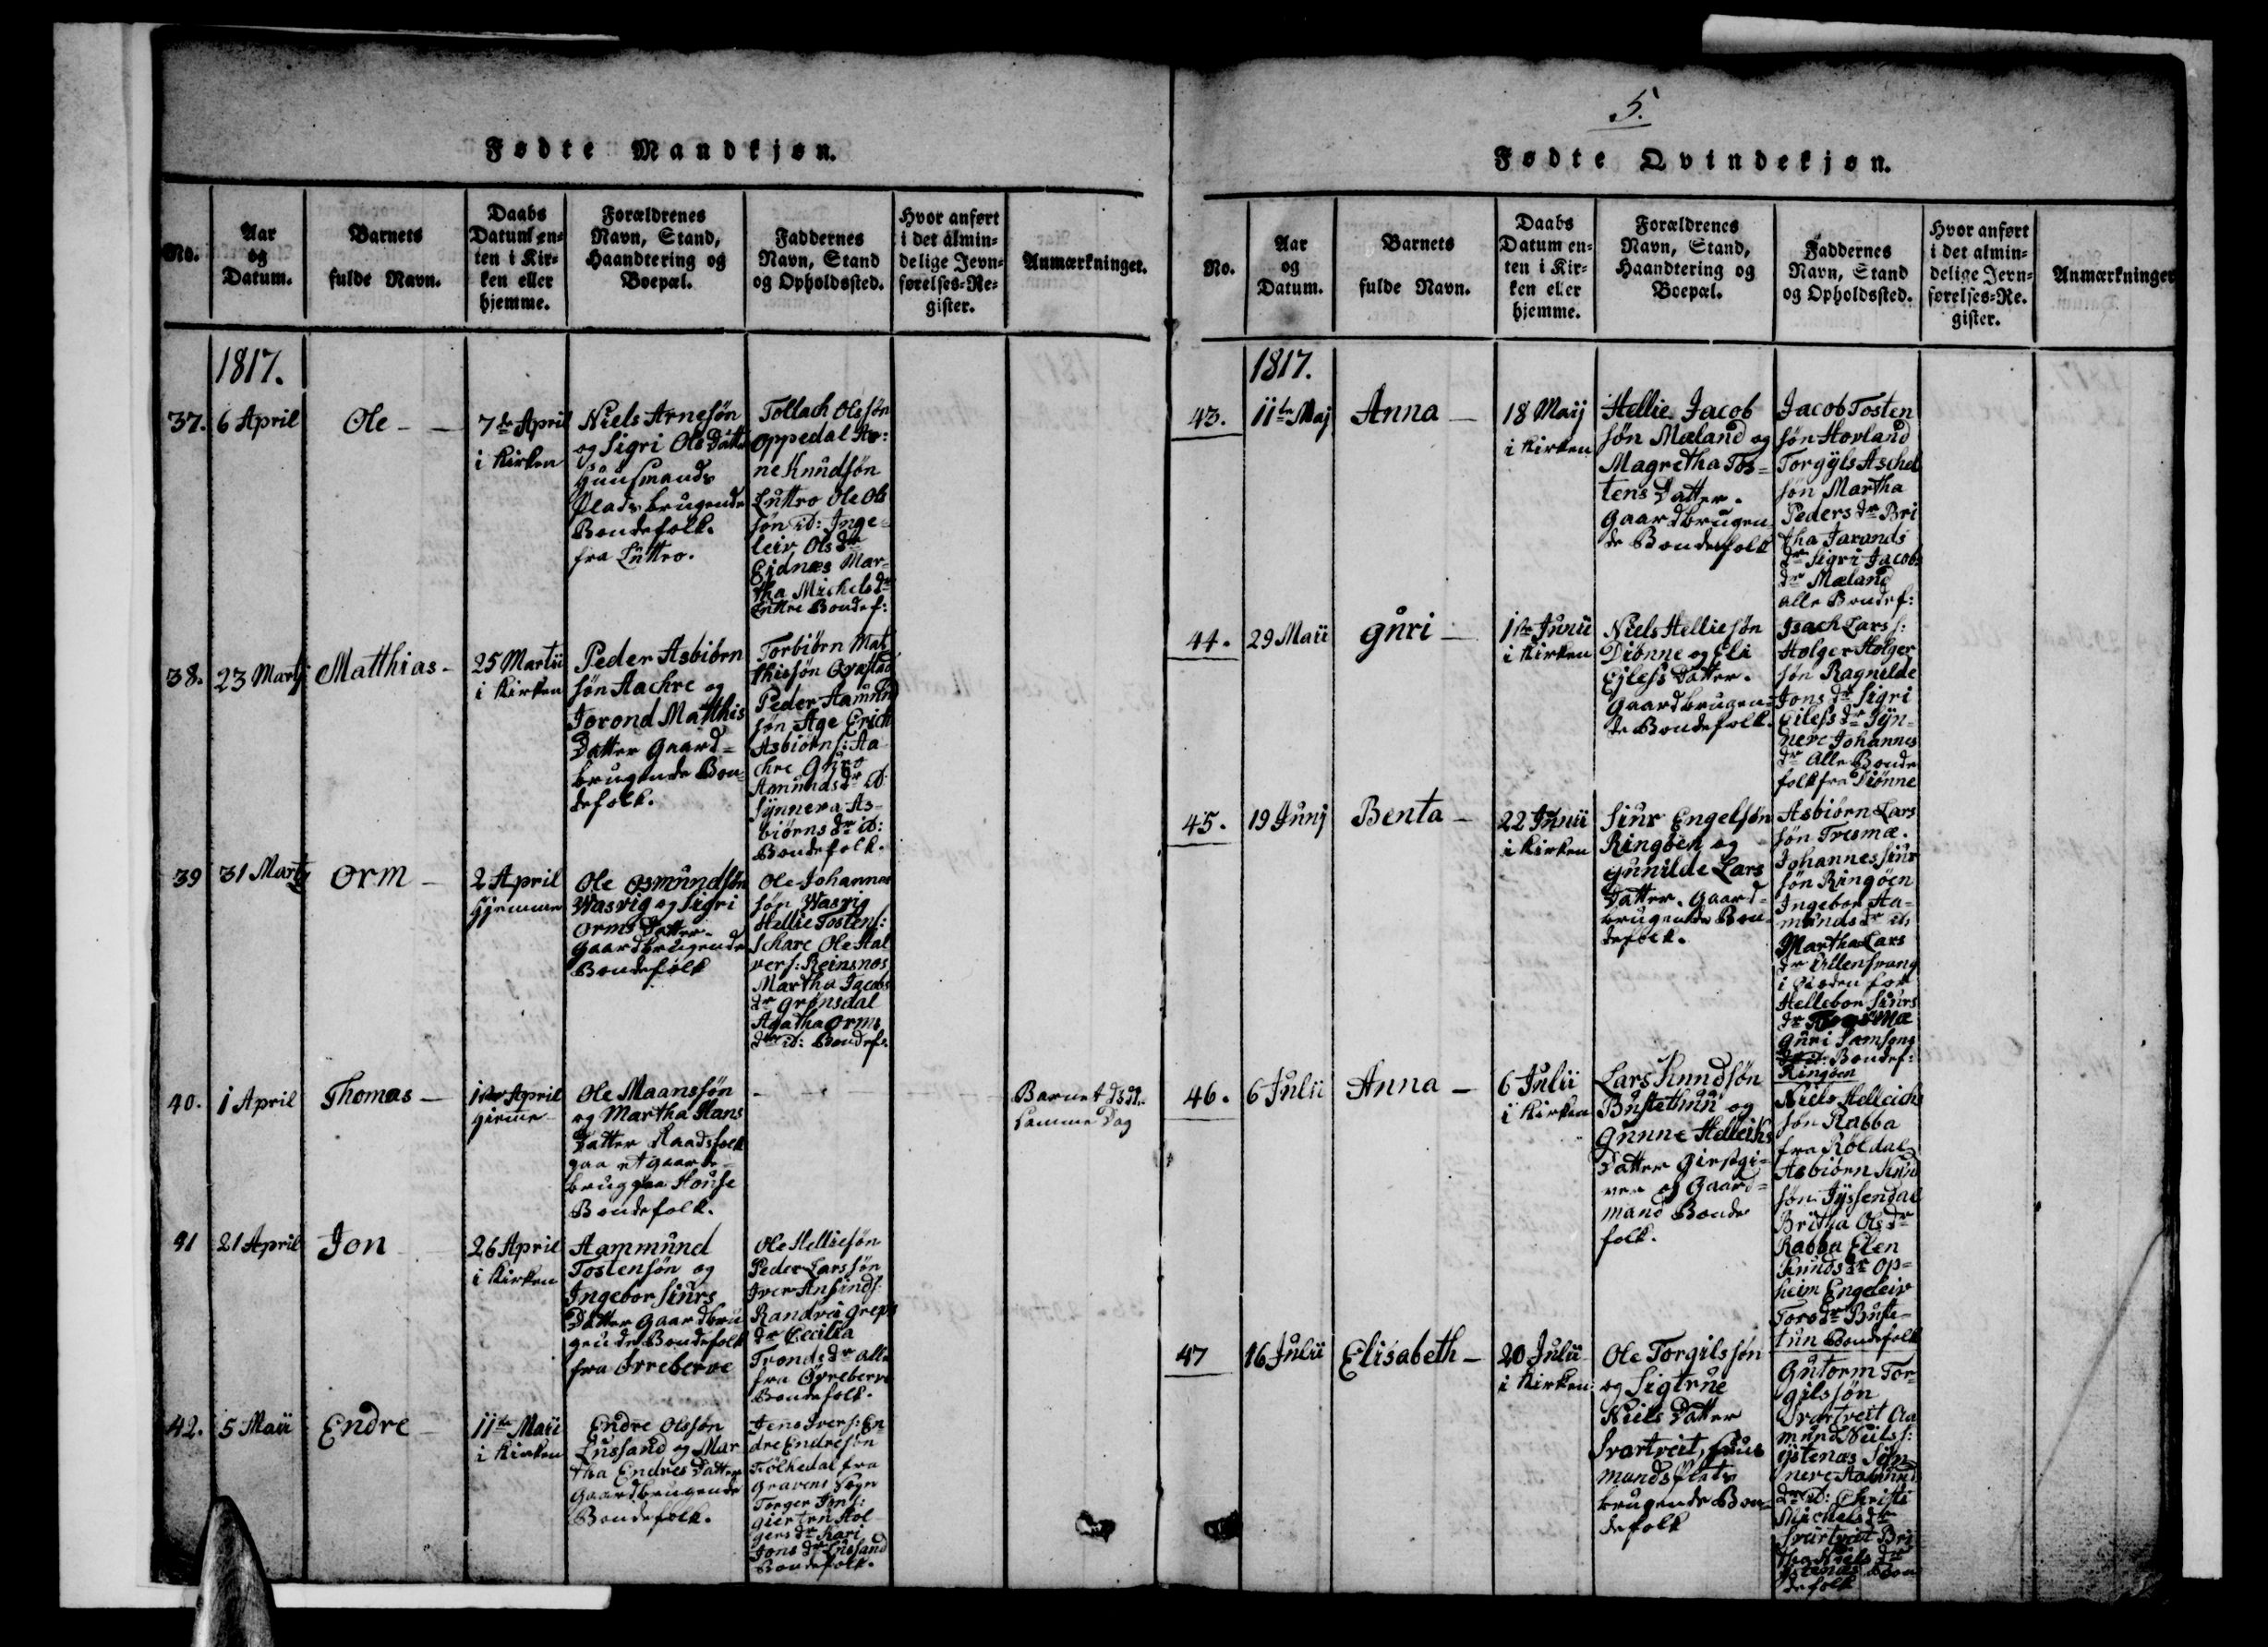 Fødte Mandkjøn.
No.
Aar
og
Datum.
Barnets
fulde Navn.
Daabs
Datum en-
ten i Kir-
ken eller
hjemme.
Forældrenes
Navn, Stand,
Haandtering og
Boepæl.
Faddernes
Navn, Stand
og Opholdssted.
Hvor anført
i det almin-
delige Jevn-
førelses-Re-
gister.
Anmærkninger.
1817.
37.
6 April
Ole
7de April
i Kirken
Niels Arnesøn
og Sigri Ols Datter
Huusmands
Plads brugende
Bondefolk.
fra Luttro.
Tollach Olssøn
Oppedal Ar-
ne Knudsøn
Luttro Ole Ols
søn ib: Inge-
leiv Ols dr
Eidnæs Mar-
tha Michels dr
Luttro Bondef:
38.
23 Martj
Matthias
25 Martii
i Kirken
Peder Asbiørn
søn Aachre og
Jorond Matthis
Datter Gaard-
brugende Bon-
defolk.
Torbiørn Mat
thissøn
Peder Aamund
søn Age Erich
Asbiørns: Aa-
chre Guro
Amunds dr ib
Synneva As-
biørns dr ib:
Bondefolk.
39
31 Martj
Orm
2 April
Hjemme
Ole Osmundsøn
Wasvig og Sigri
Orms Datter.
Gaardbrugende
Bondefolk
Ole Johannes
søn Wasvig
Hellie Tostens:
Schare Ole Hal
vers: Reinsnos
Martha Jacobs
dr Grønsdal
Agatha Orms
dr ib: Bondef:
40.
1 April
Thomas
1ste April
Hjemme
Ole Maanssøn
og Martha Hans
Datter Raadsfolk
paa et Gaards-
brug paa House
Bondefolk.
Barnet døde
samme Dag
41
21 April
Jon
26 April
i Kirken
Aammund
Tostensøn og
Ingebor Siurs
Datter Gaardbru
gende Bondefolk
fra Ørreberve
Ole Helliesøn
Peder Larssøn
Iver Ansinds:
Randvei Greps
dr Cecilia
Tronds dr alle
fra Ørreberve
Bondefolk.
42.
5 Maii
Endre
11te Maii
i Kirken
Endre Olssøn
Lussand og Mar
tha Endres Datter
Gaardbrugende
Bondefolk.
Jens Ivers: En-
dre Endresøn
Tiølhedal fra
Gravens Sogn
Torger Jons:
Giertru Hol
gers dr Kari
Jons dr Lussand
Bondefolk.
5.
Fødte Qvindekjøn.
No.
Aar
og
Datum.
Barnets
fulde Navn.
Daabs
Datum en-
ten i Kir-
ken eller
hjemme.
Forældrenes
Navn, Stand,
Haandtering og
Boepæl.
Faddernes
Navn, Stand
og Opholdssted.
Hvor anført
i det almin-
delige Jevn-
førelses-Re-
gister.
Anmærkninger
1817.
43.
11te Maj
Anna
18 Maij
i Kirken
Hellie Jacob
søn Mæland og
Magretha Tos-
tens Datter.
Gaardbrugen-
de Bondefolk
Jacob Tosten
søn Hovland
Torgyls Aschel
søn Martha
Peders dr Bri
tha Jarands
dr Sigri Jacobs
dr Mæland
alle Bondef:
44.
29 Maii
Guri
1ste Junii
i Kirken
Niels Helliesøn
Diønne og Eli
Eilefs Datter.
Gaardbrugen-
de Bondefolk.
Isach Lars s:
Holger Holger
søn Ragnilde
Jons dr Sigri
Eilefs dr Syn-
neve Johannes
dr Alle Bonde
folk fra Diønne
45.
19 Junj
Benta
22 Junii
i Kirken
Siur Engelsøn
Ringøen og
Gunilde Lars
Datter. Gaard-
brugende Bon-
defolk.
Asbiørn Lars
søn Tresmæ.
Johannes Siur
søn Ringøen
Ingebor Aa-
munds dr ib
Martha Lars
dr Ullensvang
Hellebor Siurs
dr
Guri Samsons
Bondef:
Ringøen
46.
6 Julii
Anna
6 Julii
i Kirken
Lars Knudsøn
Bustethun og
Gunne Helleiks
Datter Giestgi-
ver og Gaard-
mand Bonde
folk.
Niels Helleich
søn Rabba
fra Røldal
Asbiørn Knud
søn Jyssendal
Britha Ols dr
Rabba Elen
Knuds dr Op-
heim Engeleiv
Tors dr Buste-
tun Bondefolk
47
16 Julii
Elisabeth
20 Julii
i Kirken
Ole Torgilssøn
og Sigtrue
Niels Datter
Svartveit, Huus
mands Plads
brugende Bon-
defolk
Gutorm Tor-
gilssøn
Svartveit Aa
mund Neils s:
Ystenæs Syn-
neve Aamund
dr ib: Christi
Michels dr
Svartveit Bri
tha Niels dr
Ystenæs Bon
defolk